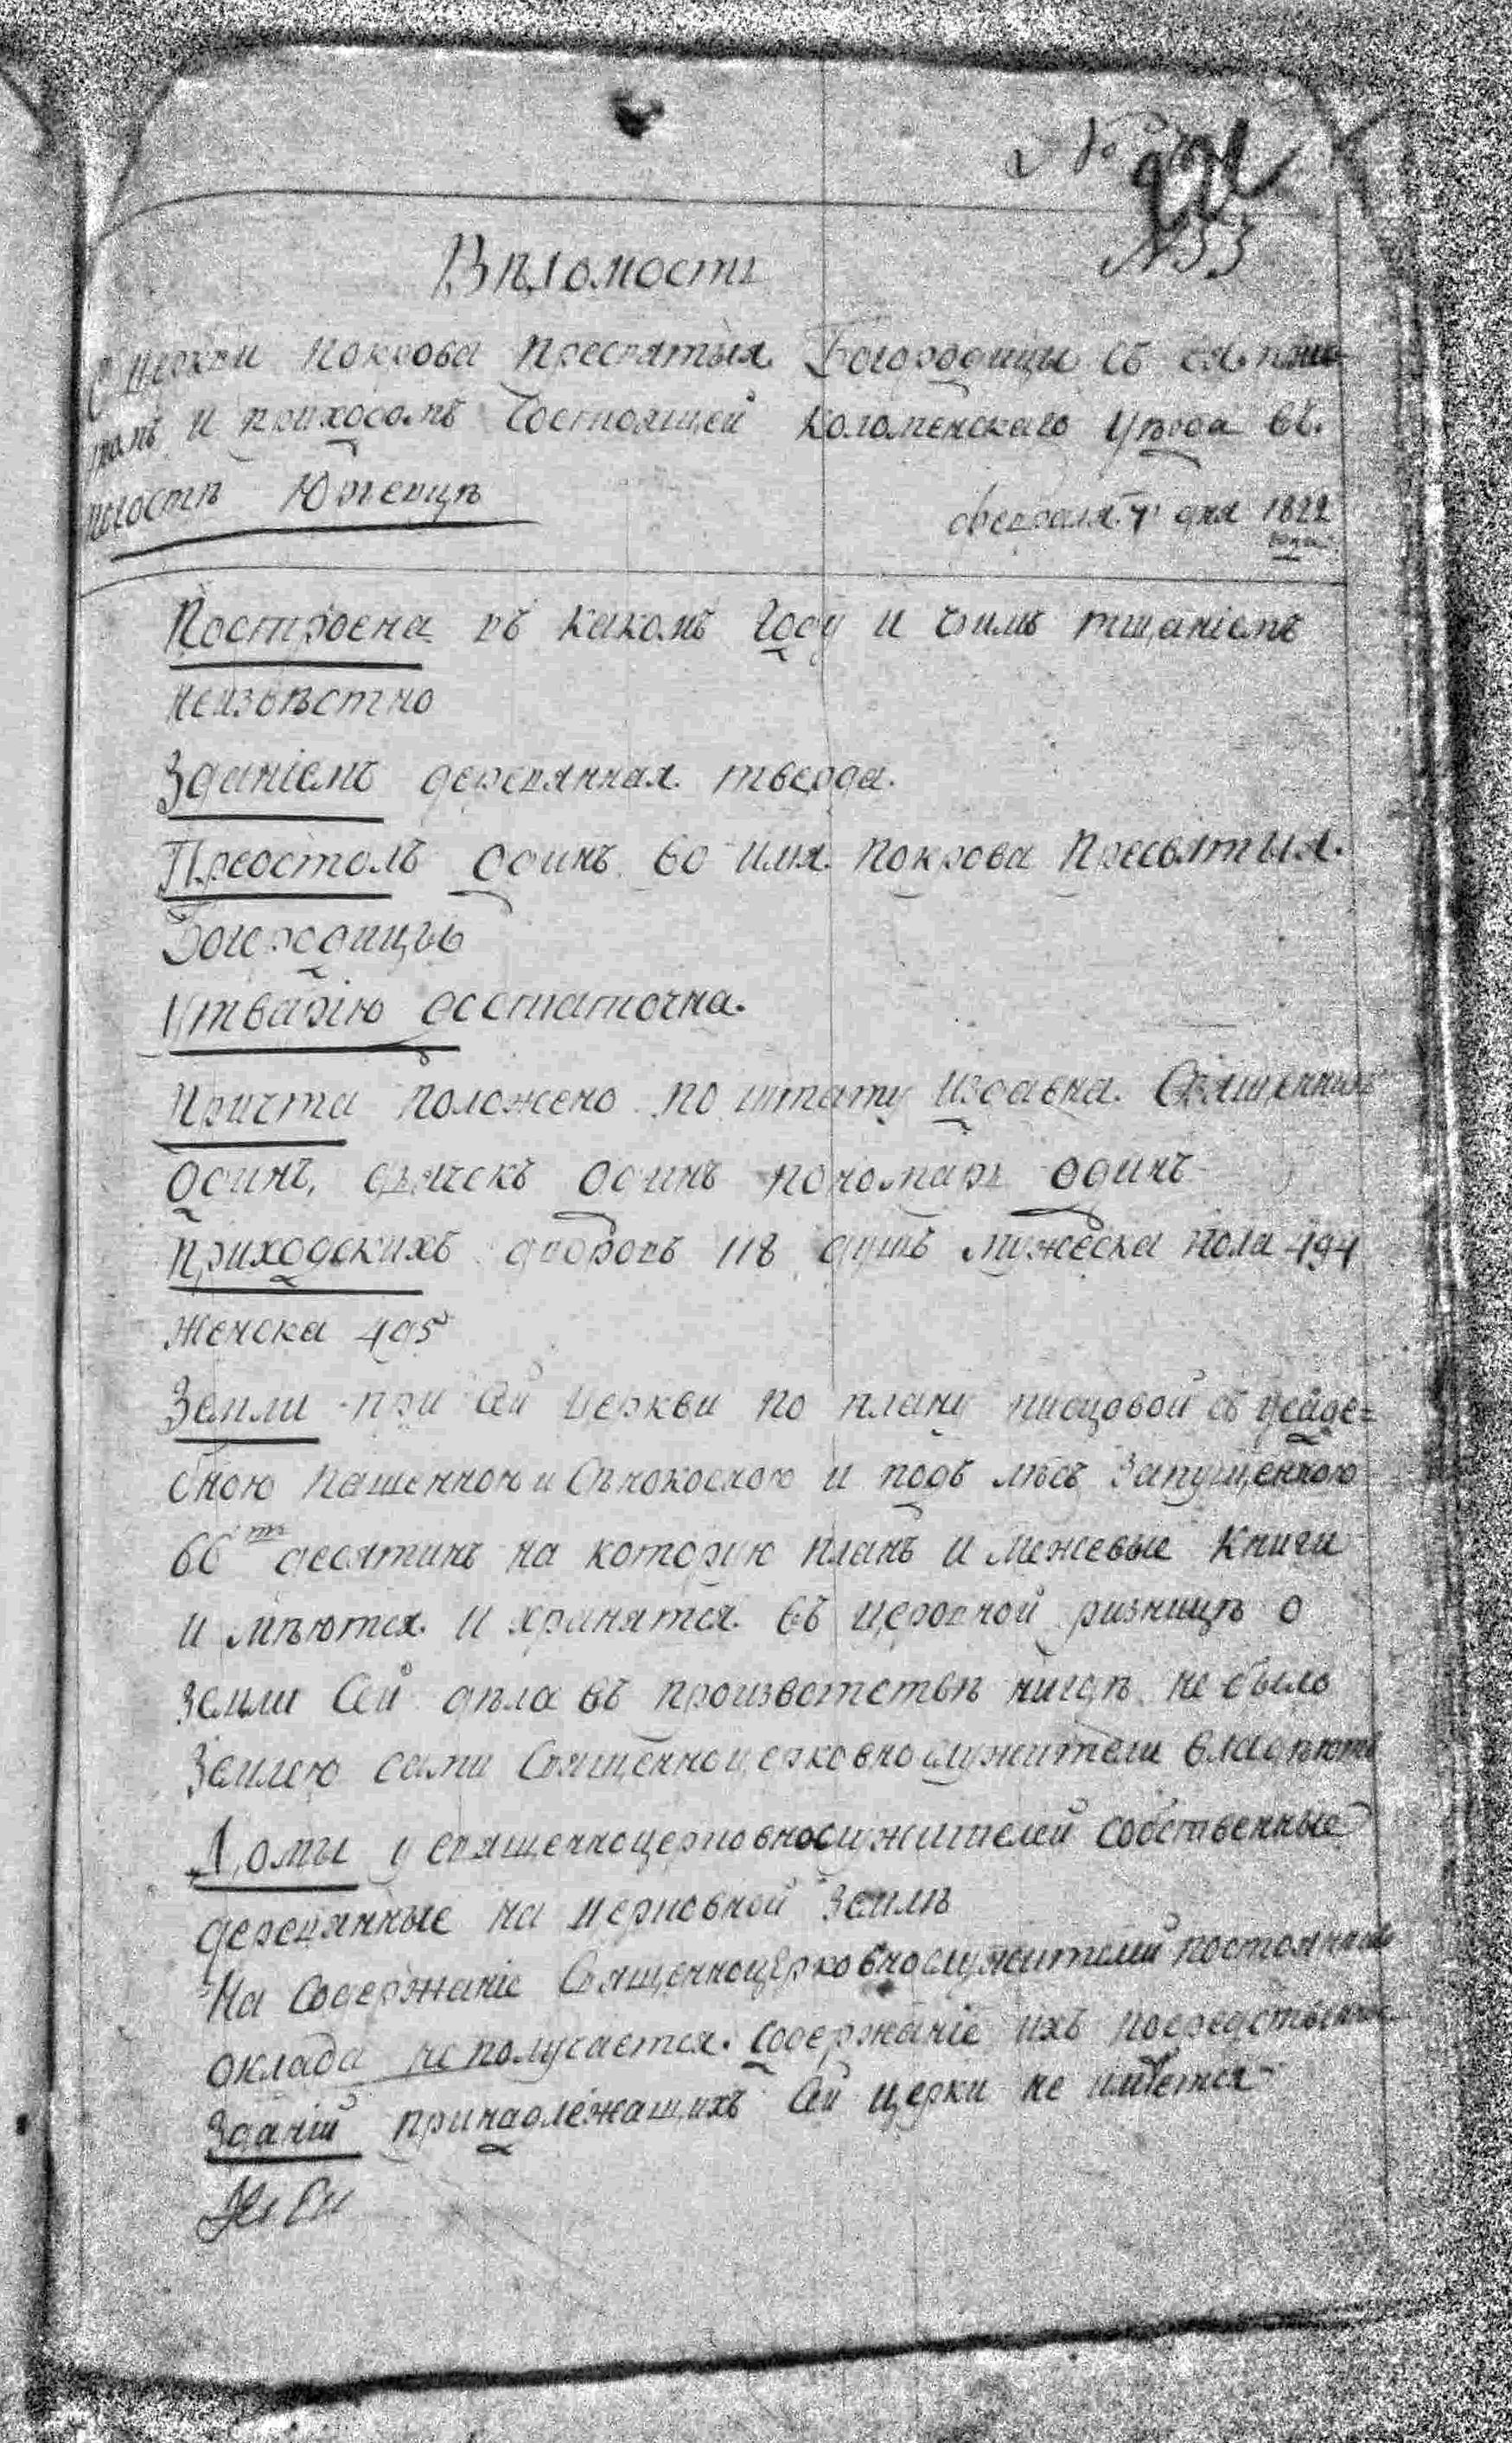 № 
№ 33
Вѣдомость
О церкви Покрова Пресвятыя Богородицы съ ея прич-
томъ и приходомъ состоящей Коломенскаго уѣзда въ
погостѣ Южевцѣ
февраля дня 1822
года
Построена въ какомъ году и чьимъ тщаніемъ
неизвѣстно
Зданіемъ деревянная тверда.
Престолъ одинъ во имя Покрова Пресвятыя
Богородицы
Утварію достаточна.
Причта положено по штату издавна. Священникъ
одинъ, дьячекъ одинъ пономарь одинъ
Приходскихъ дворовъ 118 душъ мужеска пола 494
женска 495
Земли при сей церкви по плану писцовой съ усаде=
бною пашенною и сѣнокосною и подъ лѣсъ запущенною
66 десятинъ на которую планъ и межевые книги
и мѣются и хранятся въ церковной ризницѣ о
земли сей дѣла въ произвотствѣ нигдѣ не было
Землею сами священноцерковнослужители владѣютъ
Домы у священноцерковнослужителей собственные
деревянные на церковной землѣ
На содержаніе священноцерковнослужителей постояннаго
оклада не полусается. Содержаніе ихъ посредственно
Зданій принадлежащихъ сей церки не имѣется